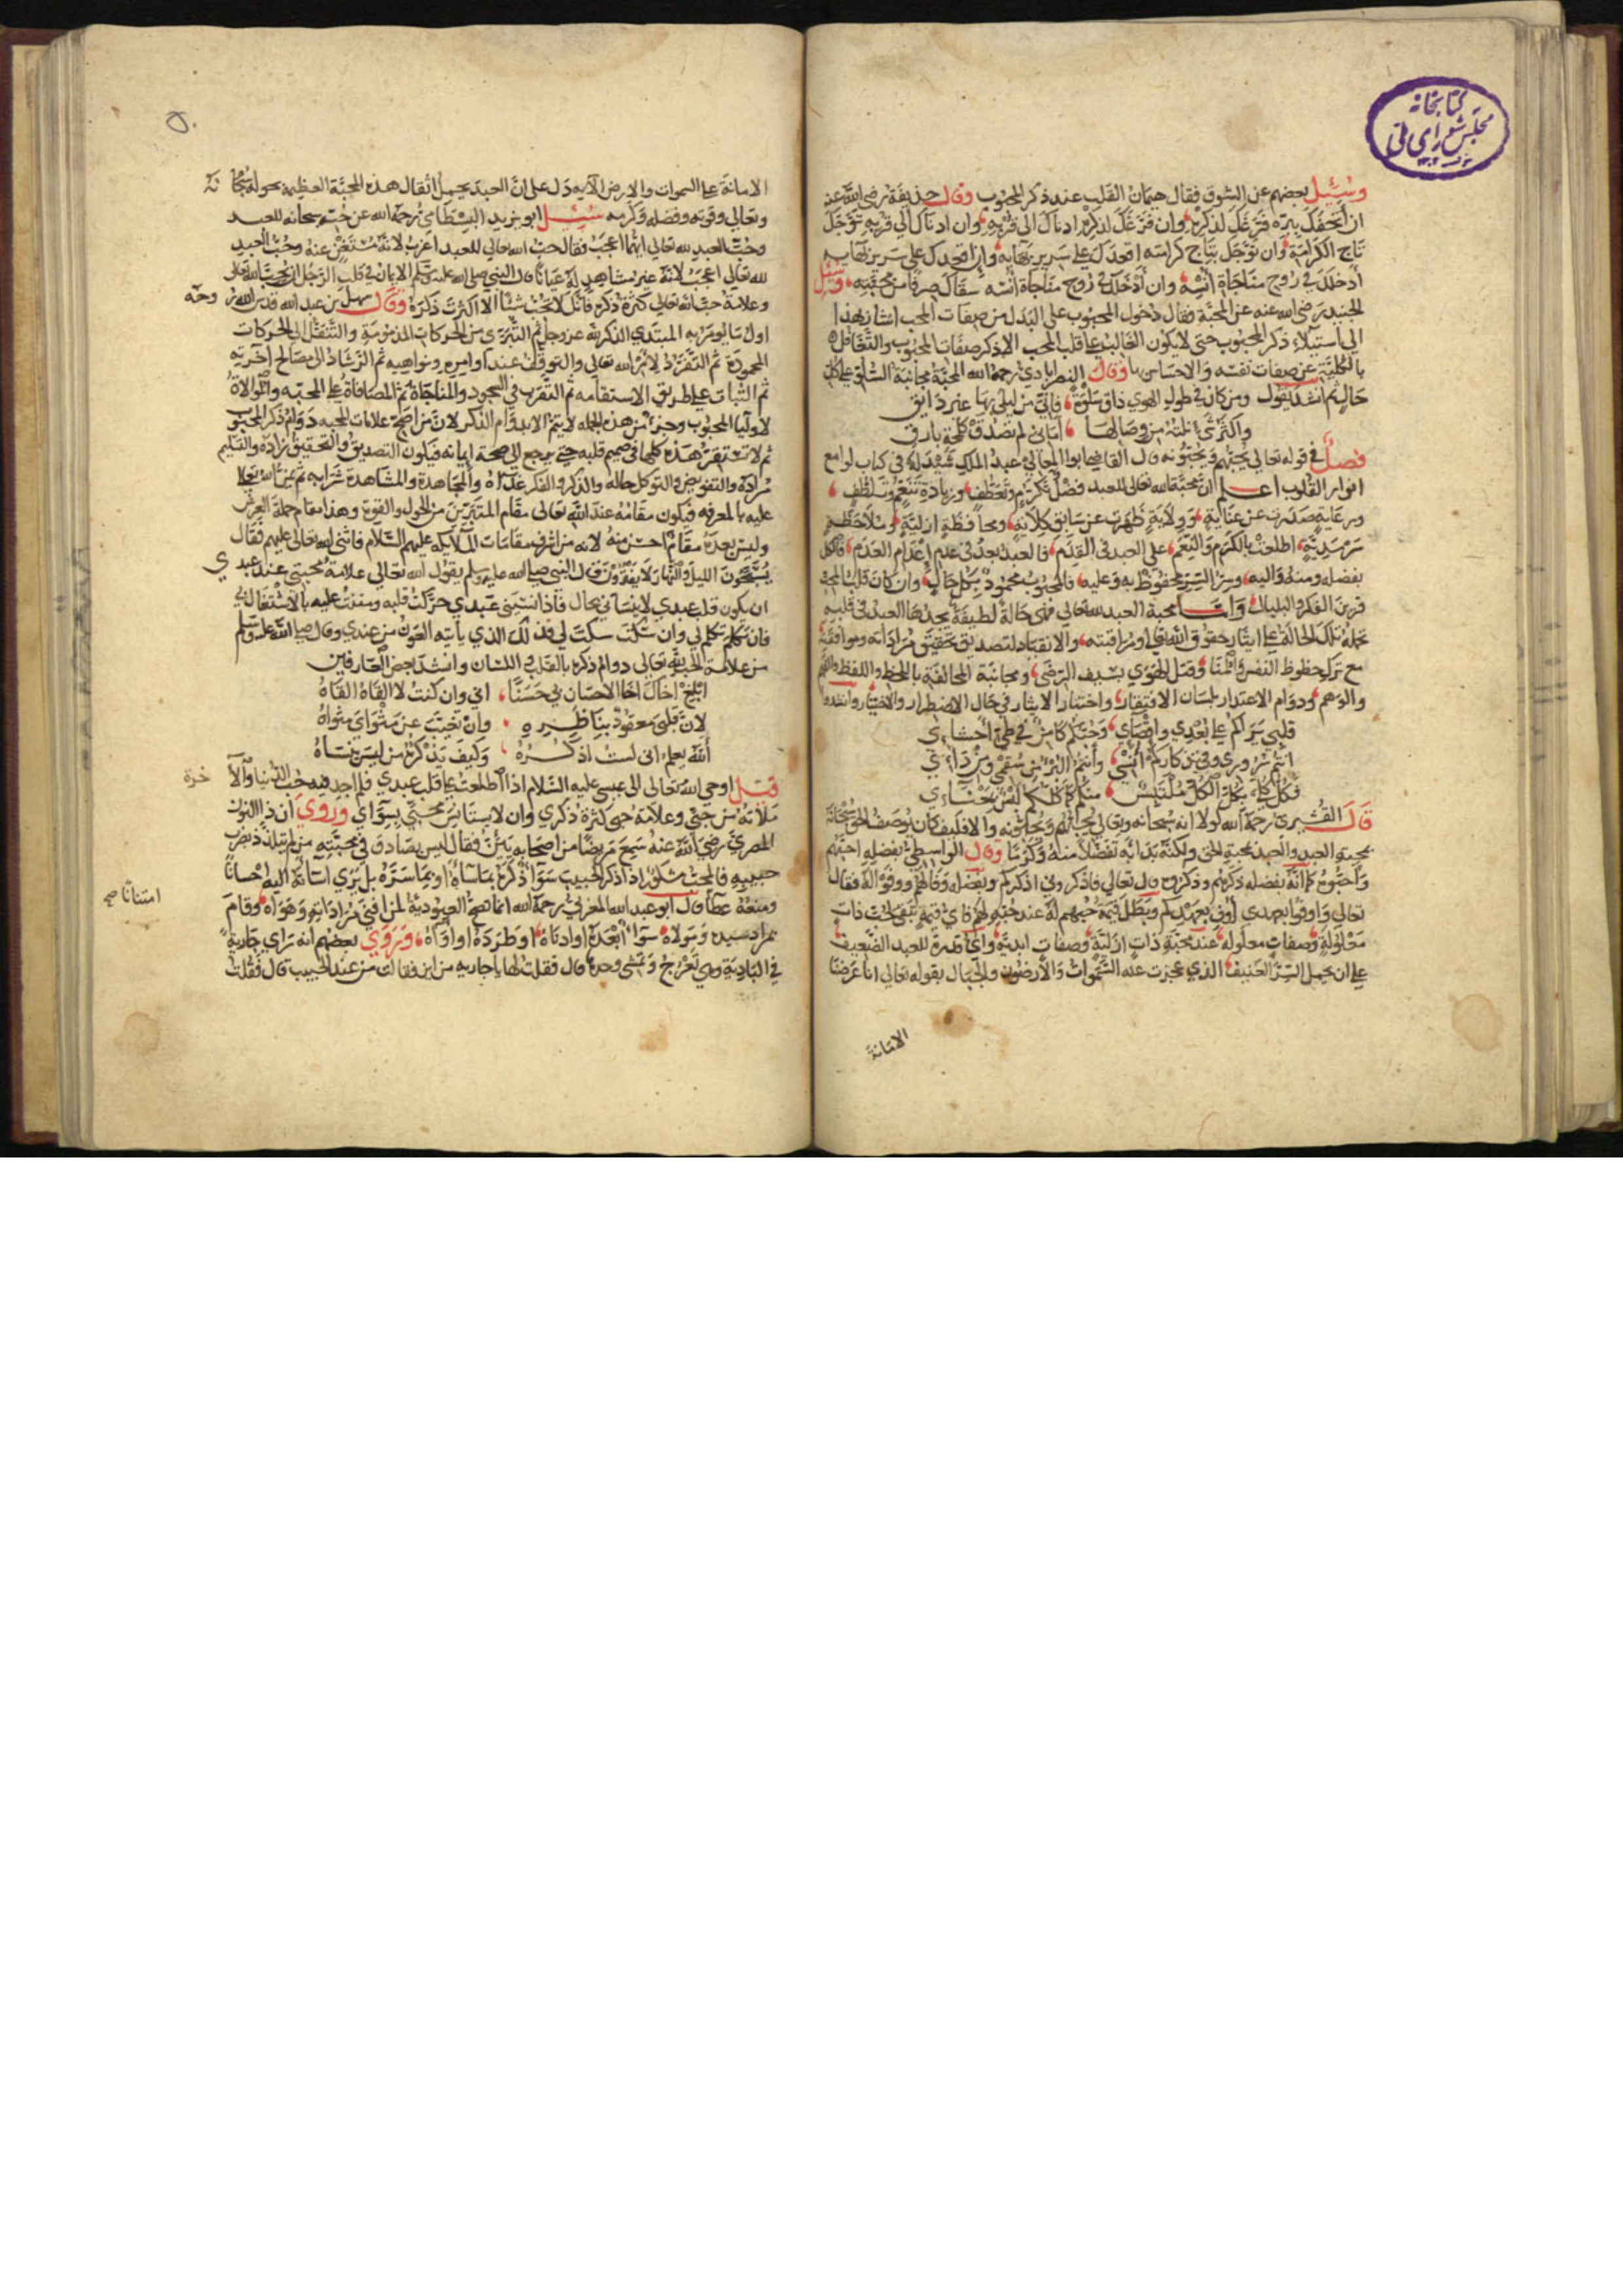 كتابخانه
مجلس شورای ملی
وسئل بعضهم عن الشوق فقال هيمان القلب عند ذكر المحبوب وقال حذيفة رضي الله عنه
ان اتحفك ببره فرغك لذكره وان فرغك لذكره ادناك الى قربه وان ادناك الى قربه توجك
تاج الكرامة وان توجك بتاج كرامته اقعدك على سرير بقايه وان اقعدك على سرير بقايه
أدخلك في روح مناجاة انسه وان أدخلك في روح مناجاة انسه سقاك صرفا من محبته وسئل
الجنيد رضي الله عنه عن المحبة فقال دخول المحبوب على البدل من صفات المحب اشار بهذا
الى استيلاء ذكر المحبوب حتى لا يكون الغالب على قلب المحب الا ذكر صفات المحبوب والتغافل
بالكلية عن صفات نفسه والاحساس بها وقال النصرابادي رحمة الله المحبة مجانبة السلو على كل
حال ثم انشد يقول ومن كان في طول الهوى ذاق سلوة فاني من ليلى لها غير ذايق
واكثر شئ نلته من وصالها أماني لم تصدق كلمحة بارق
فصل في قوله تعالى يحبهم ويحبونه قال القاضي ابو المعالي عبد الملك شيذلة في كتاب لوامع
انوار القلوب اعلم ان محبة الله تعالى للعبد فضل تكرم وتعطف وزيادة تنعم وتلطف
ورعاية صدرت عن عناية وولاية ظهرت عن سابق كلاية ومحافظة ازلية وملاحظة
سرمدية اطلعت بالكرم والنعم على العبد في القدم فالعبد بعد في عدم إعدام العدم فالكل
بفضله ومنه واليه وسر السر محفوظ به وعليه فالمحبوب محمود بكل حال وان كان قلب المحب
قرين الفكر والبلبال وأما محبة العبد لله تعالى فهي حالة لطيفة يجدها العبد في قلبه
تحمله تلك الحالة على ايثار حقوق الله تعالى ومراقبته والانقياد لتصديق تحقيق مراداته وموافقة
مع ترك حظوظ النفس وقتل الهوى بسيف الرضى ومجانبة المخالفة باللحظ واللفظ
والوهم ودوام الاعتذار بلسان الافتقار واختيار الايثار في حال الاضطرار والاختيار وانشدوا
قلبي يراكم على بعدي واقصاي وحبكم كامن في طي أحشاءي
انتم سروري وفي تذكاركم أنسي وأنتم البرؤ من سقمي ومن داءي
فكل كلي بكل الكل ملتبس
قال القشيري رحمة الله لولا انه سبحانه وتعالى يحبهم ويحبونه والا فكيف كان يوصف الحق سبحانه
بمحبة العبد والعبد بمحبة الحق ولكنه بدأ به تفضلا منه وكرما وقال الواسطي بفضله احبهم
وأحبوه كما انه بفضله ذكرهم وذكروه قال تعالى فاذكروني اذكركم وبفضله وفا لهم ووفوا له فقال
تعالى وأوفوا بعهدي أوف بعهدكم وبطل قيمة حبهم له عند حبه لهم فأي قيمة تبقى لحب ذات
معلولة وصفات معلولة عند محبة ذات ازلية وصفات ابدية وأي قدرة للعبد الضعيف
على ان يحمل السر العنيف الذي عجزت عنه السموات والأرضون والجبال بقوله تعالى انا عرضنا
الامانة
٥٠
الامانة على السموات والارض الآية دل على ان العبد يحمل اثقال هذه المحبة العظيمة بحوله سبحانه
وتعالى وقوته وفضله وكرمه سئل ابو يزيد البسطامي رحمة الله عن حبه سبحانه للعبد
وحب العبد لله تعالى ايهما اعجب فقال حب الله تعالى للعبد اعزب لانه مستغن عنه وحب العبد
لله تعالى اعجب لانه غير مشاهد له عيانا قال النبي صلى الله عليه وسلم الايمان في قلب الرجل ان يحب الله تعالى
وعلامة حب الله تعالى كثرة ذكره فانك لا تحب شيئا الا اكثرت ذكره وقال سهل بن عبد الله قدس الله روحه
اول ما يومر به المبتدي الذكر لله عز وجل ثم التبري من الحركات المذمومة والتنقل الى الحركات
المحمودة ثم التفرد لامر الله تعالى والتوقف عند اوامره ونواهيه ثم الرشاد الى مصالح آخرته
ثم الثبات على طريق الاستقامه ثم التقرب في السجود والمناجاة ثم المصافاة على المحبه والموالاة
لاوليا المحبوب وحزبه من هذه الجمله لا يتم الا بدوام الذكر لان من اصح علامات المحبه دوام ذكر المحبوب
ثم لا تستقر هذه كلها في صميم قلبه حتى يرجع الى صحة ايمانه فيكون التصديق والتحقيق زاده والتسليم
مراده والتفويض والتوكل حاله والذكر والفكر غذاه والمجاهدة والمشاهدة شرابه ثم يمن الله تعالى
عليه بالمعرفه فيكون مقامه عند الله تعالى مقام المتبرين من الحول والقوة وهذا مقام حملة العرش
وليس بعده مقام احسن منه لانه من اشرف مقامات الملايكه عليهم السلام فاثنى الله تعالى عليهم فقال
يسبحون الليل والنهار لا يفترون قال النبي صلى الله عليه وسلم يقول الله تعالى علامة محبتي عند عبدي
ان يكون قلب عبدي لا ينساني بحال فاذا نسيني عبدي حركت قلبه ومننت عليه بالاشتغال بي
فان تكلم تكلم لي وان سكت سكت لي فذلك الذي ياتيه العون من عندي وقال صلى الله عليه وسلم
من علامة الحب لله تعالى دوام ذكره بالقلب واللسان وانشد بعض العارفين
ابلغ اخاك اخا الاحسان بي حسنا اني وان كنت لا القاه القاه
لان قلبي معقود بناظره وان تغيب عن مثواي مثواه
الله يعلم اني لست اذكره وكيف يذكره من ليس ينساه
قيل اوحى الله تعالى الى عيسى عليه السلام اذا اطلعت على قلب عبدي فلم اجد فيه حب الدنيا والآخرة
ملأته من حبي وعلامة حبي كثرة ذكري وان لا يستانس محبتي بسواي وروي ان ذا النون
المصري رضي الله عنه سمع مريضا من اصحابه يئن فقال ليس بصادق في محبته من لم يتلذذ بضرب
حبيبه فالمحب مشكور اذا ذكر الحبيب سوآ ذكره بما ساءه او بما سره بل يرى اساءته اليه احسانا
ومنعه عطآ قال ابو عبد الله المغربي رحمة الله انما تصح العبودية لمن افنى مراداته وهواه وقام
بمراد سيده ومولاه سوآ أبعده او ادناه او طرده او اواه وروي بعضهم انه رأى جارية
في البادية وهي تعرج وتمشي وحدها قال فقلت لها يا جاريه من اين فقالت من عند الحبيب قال فقلت
امتنانا صح